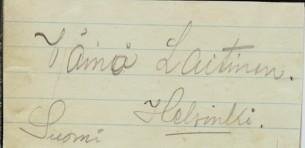 Väinö Laitinen.
Helsinki.
Suomi